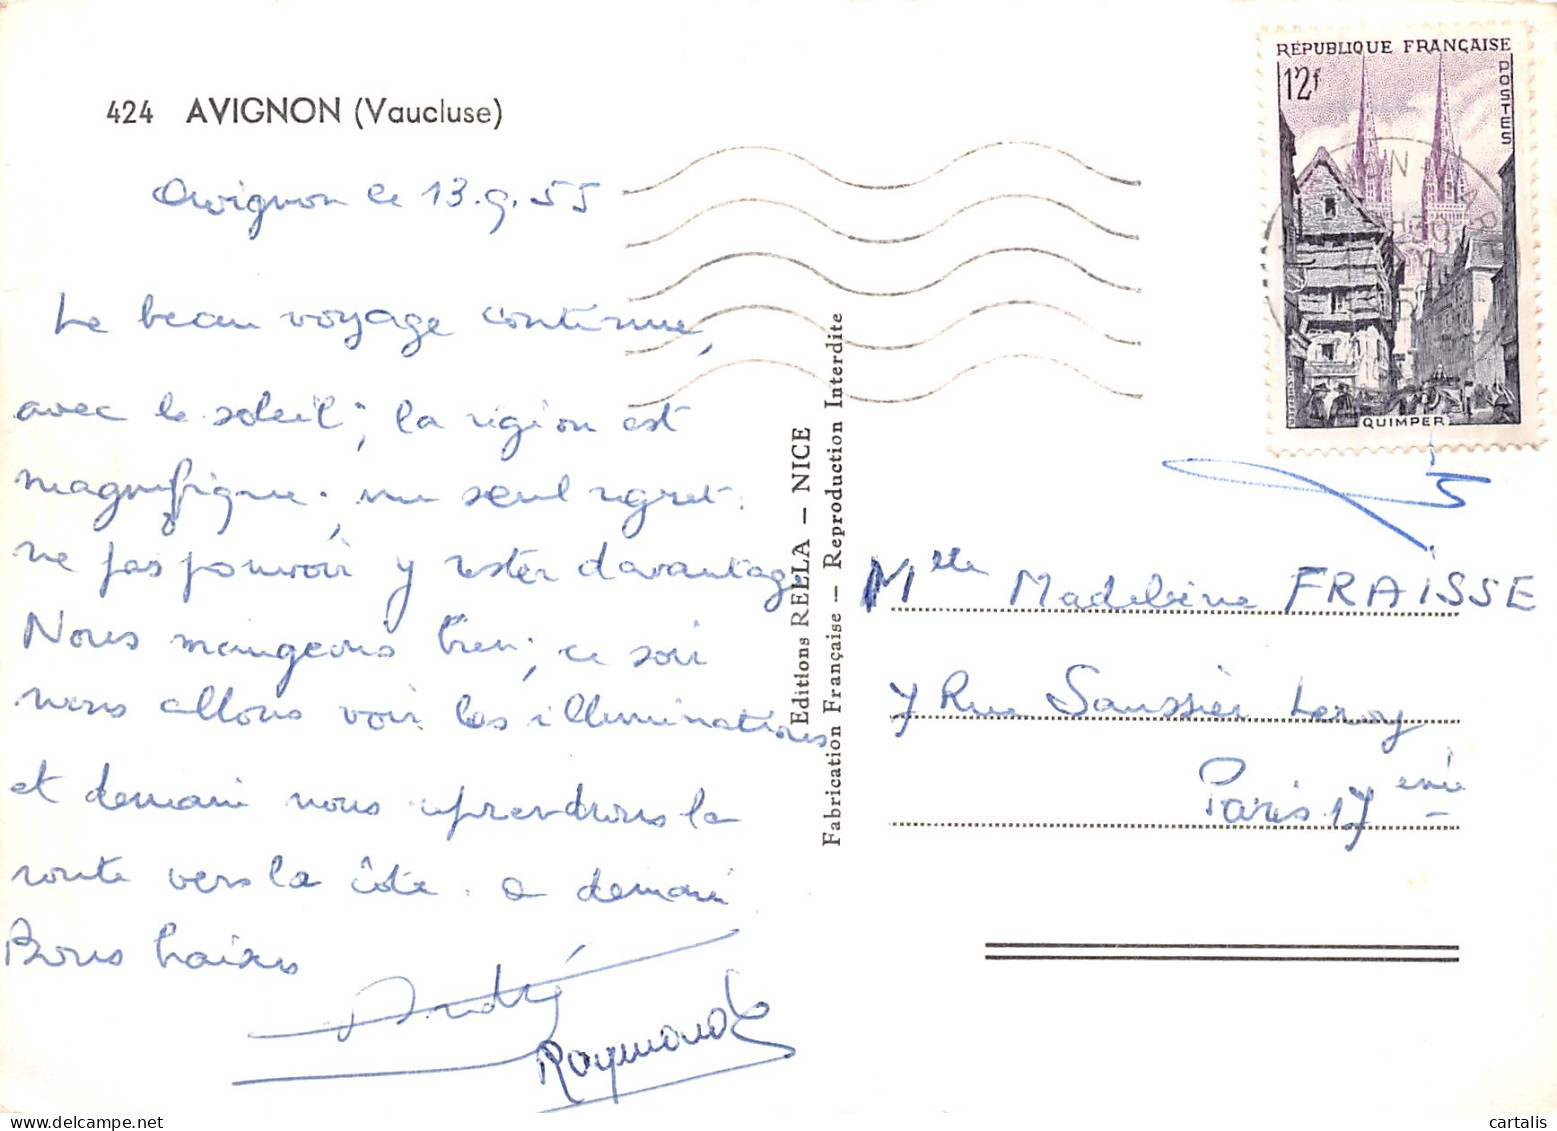 424 AVIGNON (Vaucluse)
Avignon le 13.9.55
Le beau voyage continue,
avec le soleil; la région est
magnifique, un seul regret:
ne pas pouvoir y rester davantage
Nous mangeons bien; ce soir
nous allons voir les illuminations
et demain nous reprendrons la
route vers la côte. a demain
Bons baisers
André
Raymonde
Editions RELLA — NICE
Fabrication Française — Reproduction Interdite
RÉPUBLIQUE FRANÇAISE
12f
POSTES
QUIMPER
Mlle Madeleine FRAISSE
7 Rue Saussier Leroy
Paris 17eme
cartalis